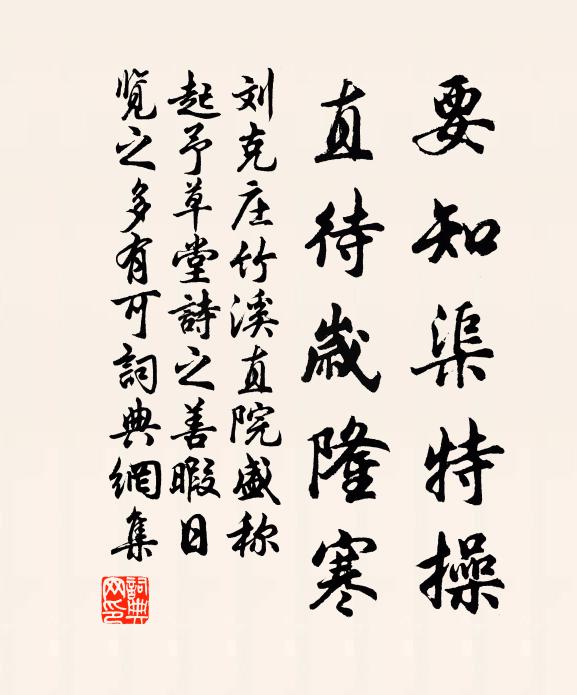 要知渠特操
直待歲隆寒
刘克庄竹溪直院盛称
起予草堂詩之善暇日
览之多有可詞典網集
詞典网印